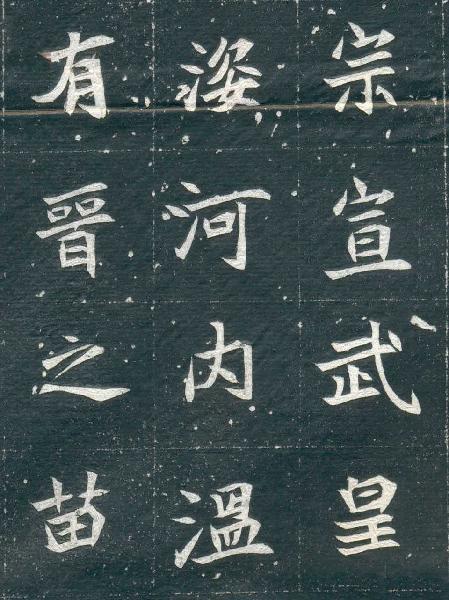 宗宣武皇
姿河内温
有晉之苗